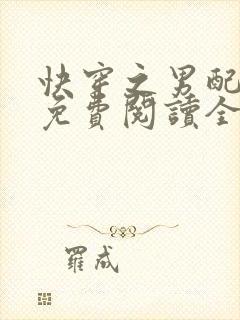 快穿之男配
免費閱讀全
羅成